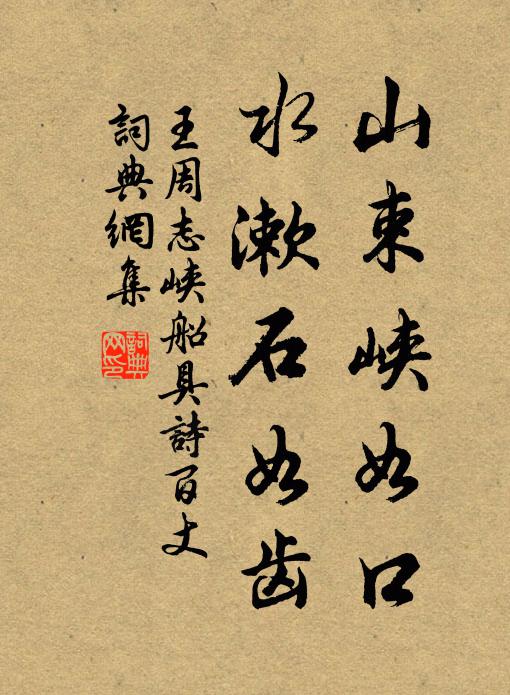 山束峡如口
水漱石如齿
王周志峡船具詩百丈
詞典網集
詞典网印